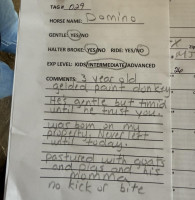 TAG# 029
HORSE NAME: Domino
GENTLE: YES/NO
HALTER BROKE: YES/NO RIDE: YES/NO
EXP LEVEL: KIDS/INTERMEDIATE/ADVANCED
COMMENTS: 3 year old
gelded paint donkey
He's gentle but timid
until he trust you.
was born on my
property never left
until today.
pastured with goats
and pigs and his
momma
no kick or bite